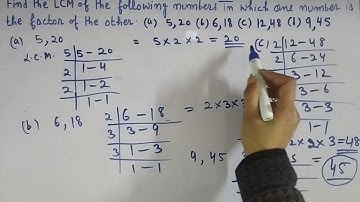 Find the LCM of the following numbers in which one number is
the factor of the other. (a) 5,20 (b) 6,18 (c) 12,48 (d) 9,45
(a) 5,20
L.C.M.
5 | 5 - 20
2 | 1 - 4
2 | 1 - 2
1 - 1
= 5 × 2 × 2 = 20
(b) 6,18
2 | 6 - 18
3 | 3 - 9
3 | 1 - 3
1 - 1
= 2 × 3 ×
(c) 2 | 12 - 48
2 | 6 - 24
3 - 12
3 - 6
- 3
1 - 1
2 × 3 = 48
9, 45
= 45